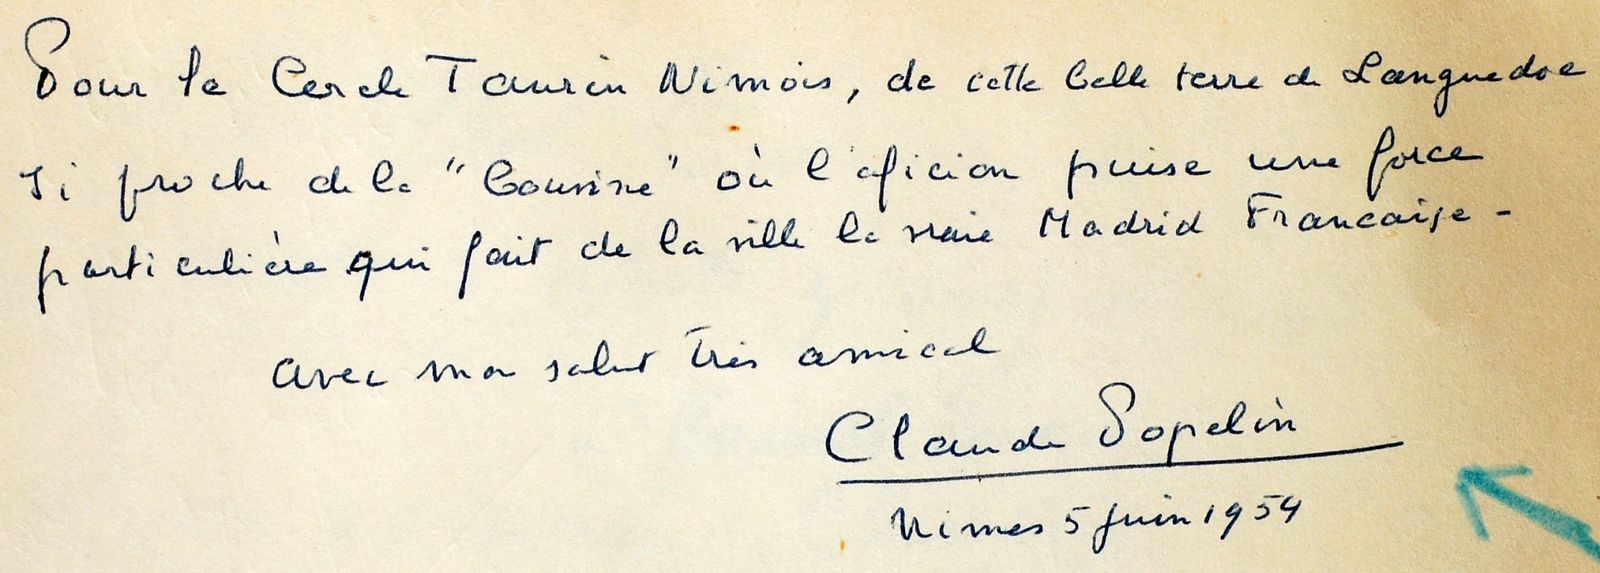 Pour le Cercle Taurin Nimois, de cette belle terre de Languedoc
si proche de la "Cousine" où l'aficion puise une force
particulière qui fait de la ville la vraie Madrid Francaise -
avec mon salut très amical
Claude Popelin
Nimes 5 Juin 1954